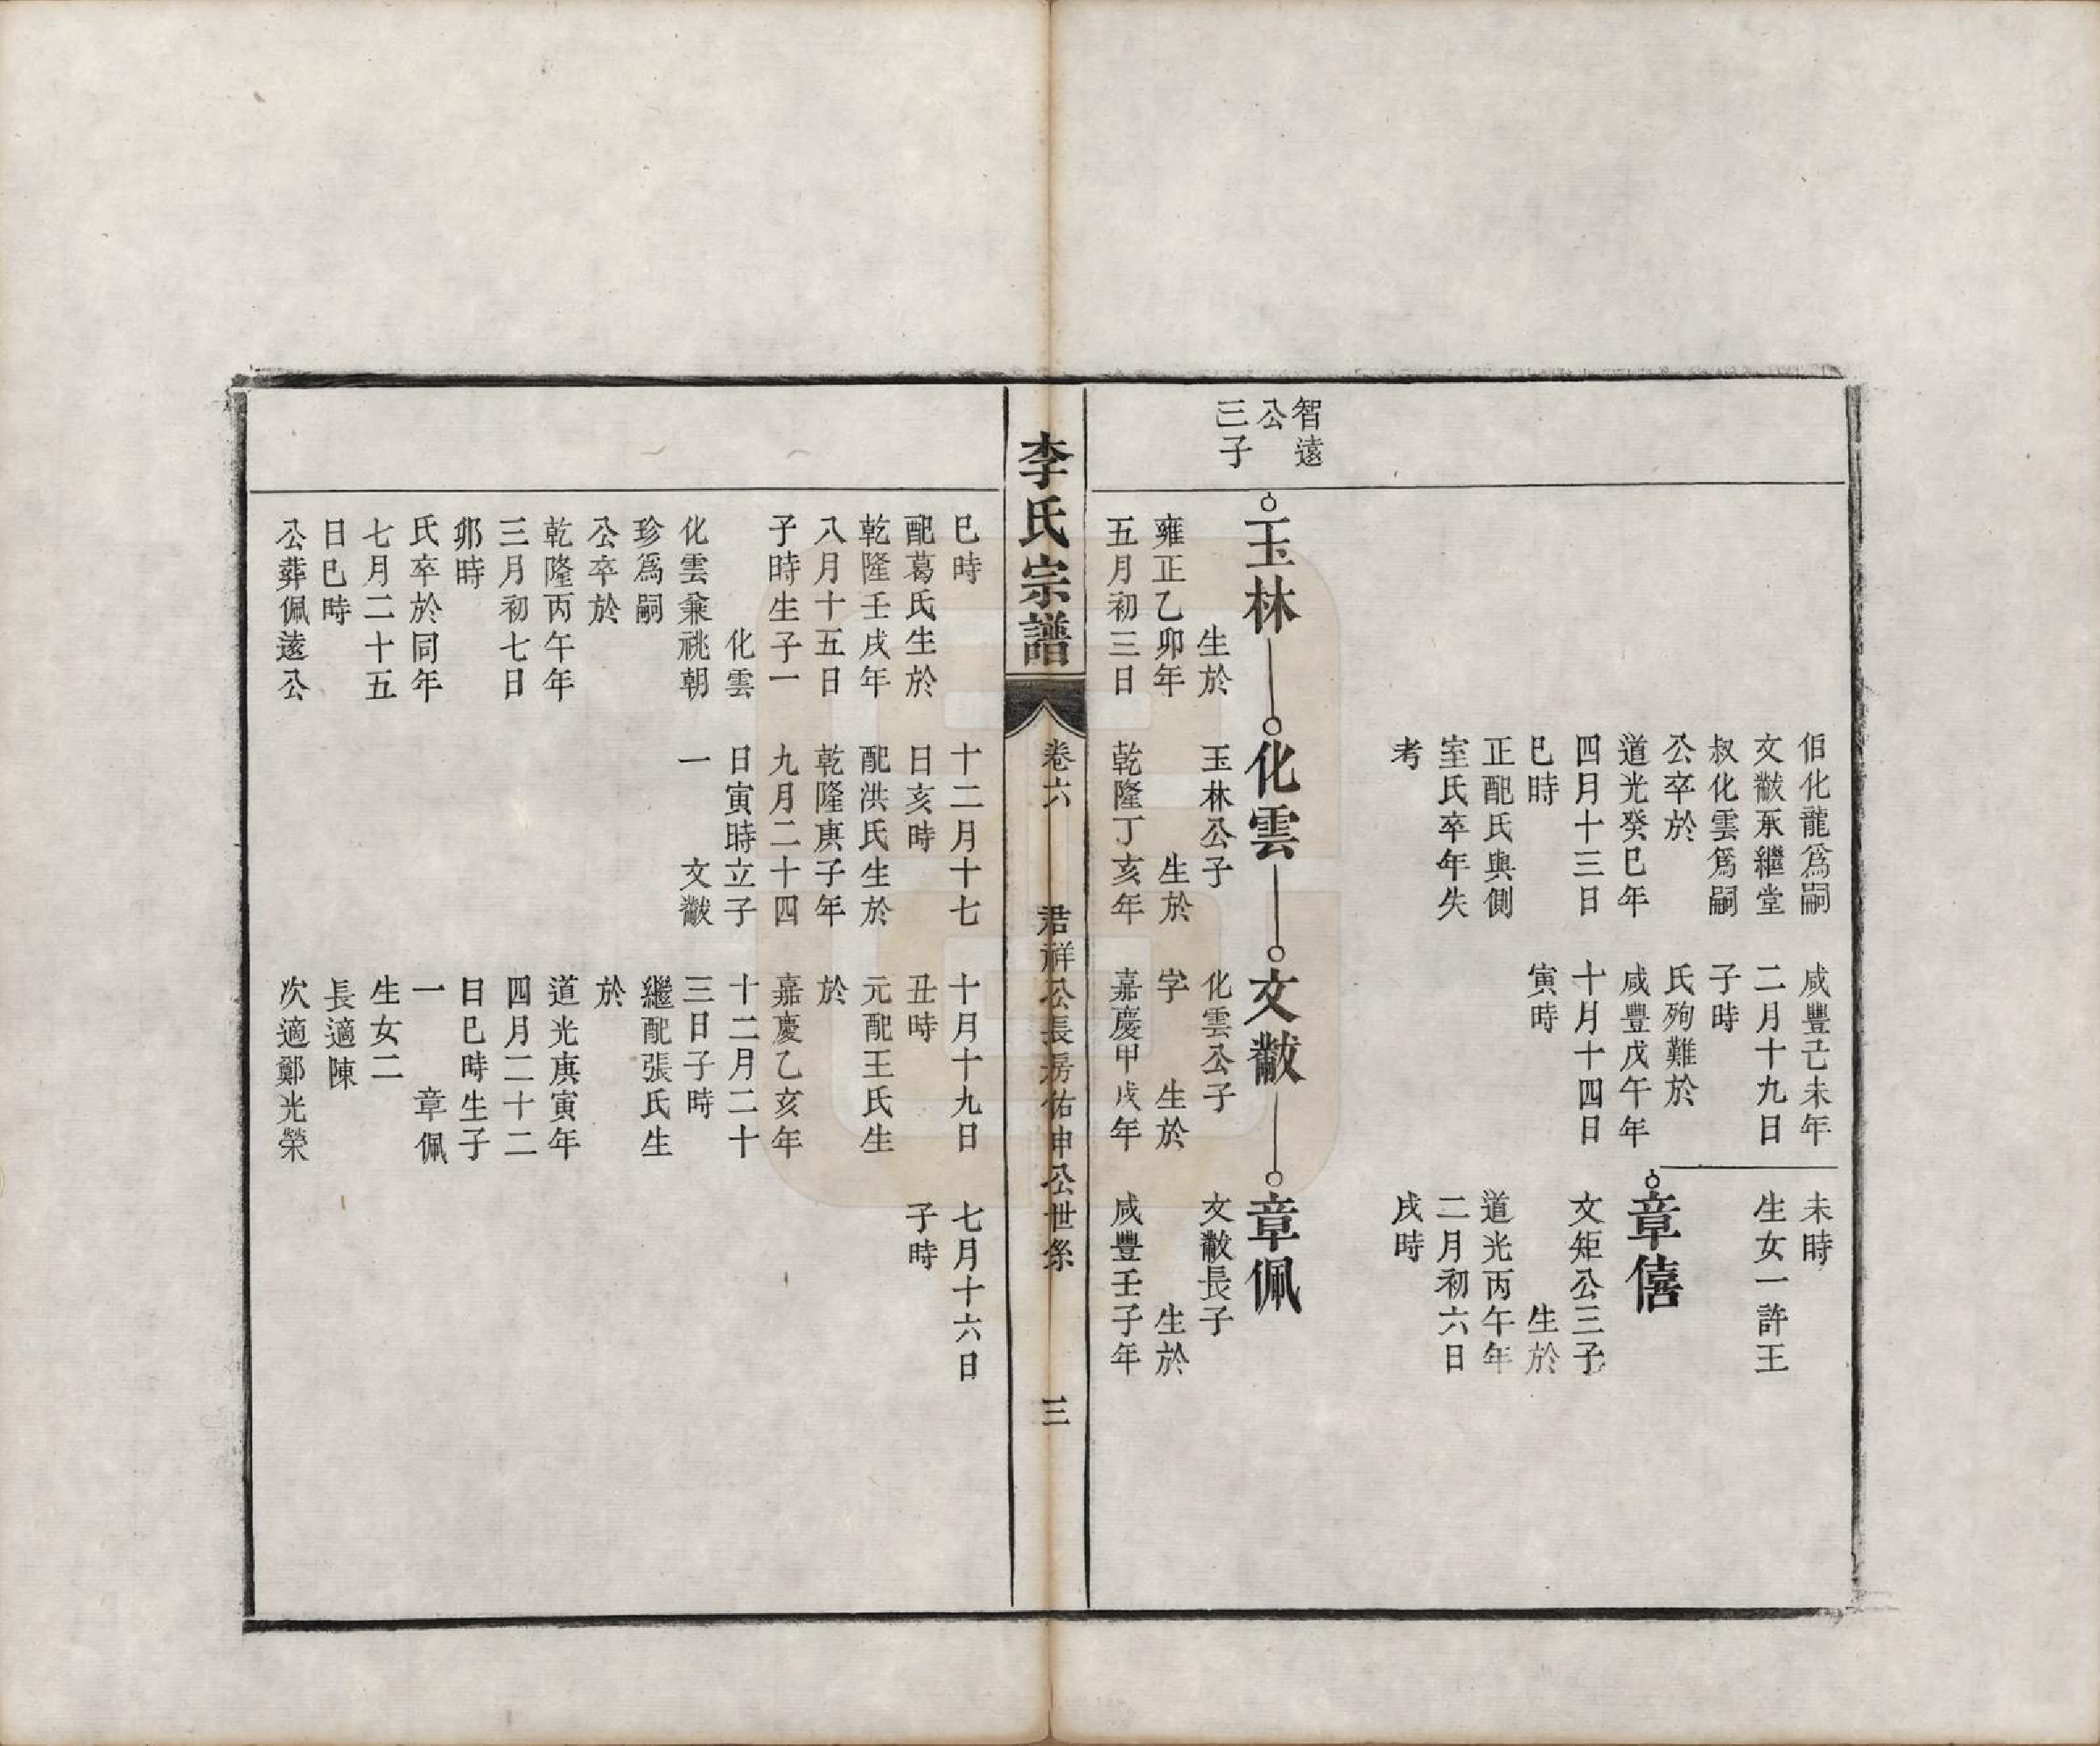 伯化龍爲嗣
文黻承繼堂
叔化雲爲嗣
公卒於
道光癸巳年
四月十三日
巳時
正配氏與側
室氏卒年失
考
咸豐己未年
二月十九日
子時
氏殉難於
咸豐戊午年
十月十四日
寅時
未時
生女一許王
章僖
文矩公三子
生於
道光丙午年
二月初六日
戌時
智遠
公
三子
玉林
生於
雍正乙卯年
五月初三日
化雲
玉林公子
生於
乾隆丁亥年
文黻
化雲公子
字 生於
嘉慶甲戌年
章佩
文黻長子
生於
咸豐壬子年
李氏宗譜 卷六 君祥公長房佑申公世系 三
巳時
配葛氏生於
乾隆壬戌年
八月十五日
子時生子一
化雲
化雲兼祧朝
珍爲嗣
公卒於
乾隆丙午年
三月初七日
卯時
氏卒於同年
七月二十五
日巳時
公葬佩遠公
十二月十七
日亥時
配洪氏生於
乾隆庚子年
九月二十四
日寅時立子
一 文黻
十月十九日
丑時
元配王氏生
於
嘉慶乙亥年
十二月二十
三日子時
繼配張氏生
於
道光庚寅年
四月二十二
日巳時生子
一 章佩
生女二
長適陳
次適鄭光榮
七月十六日
子時